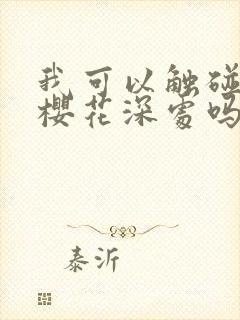 我可以触碰
樱花深处吗
泰沂